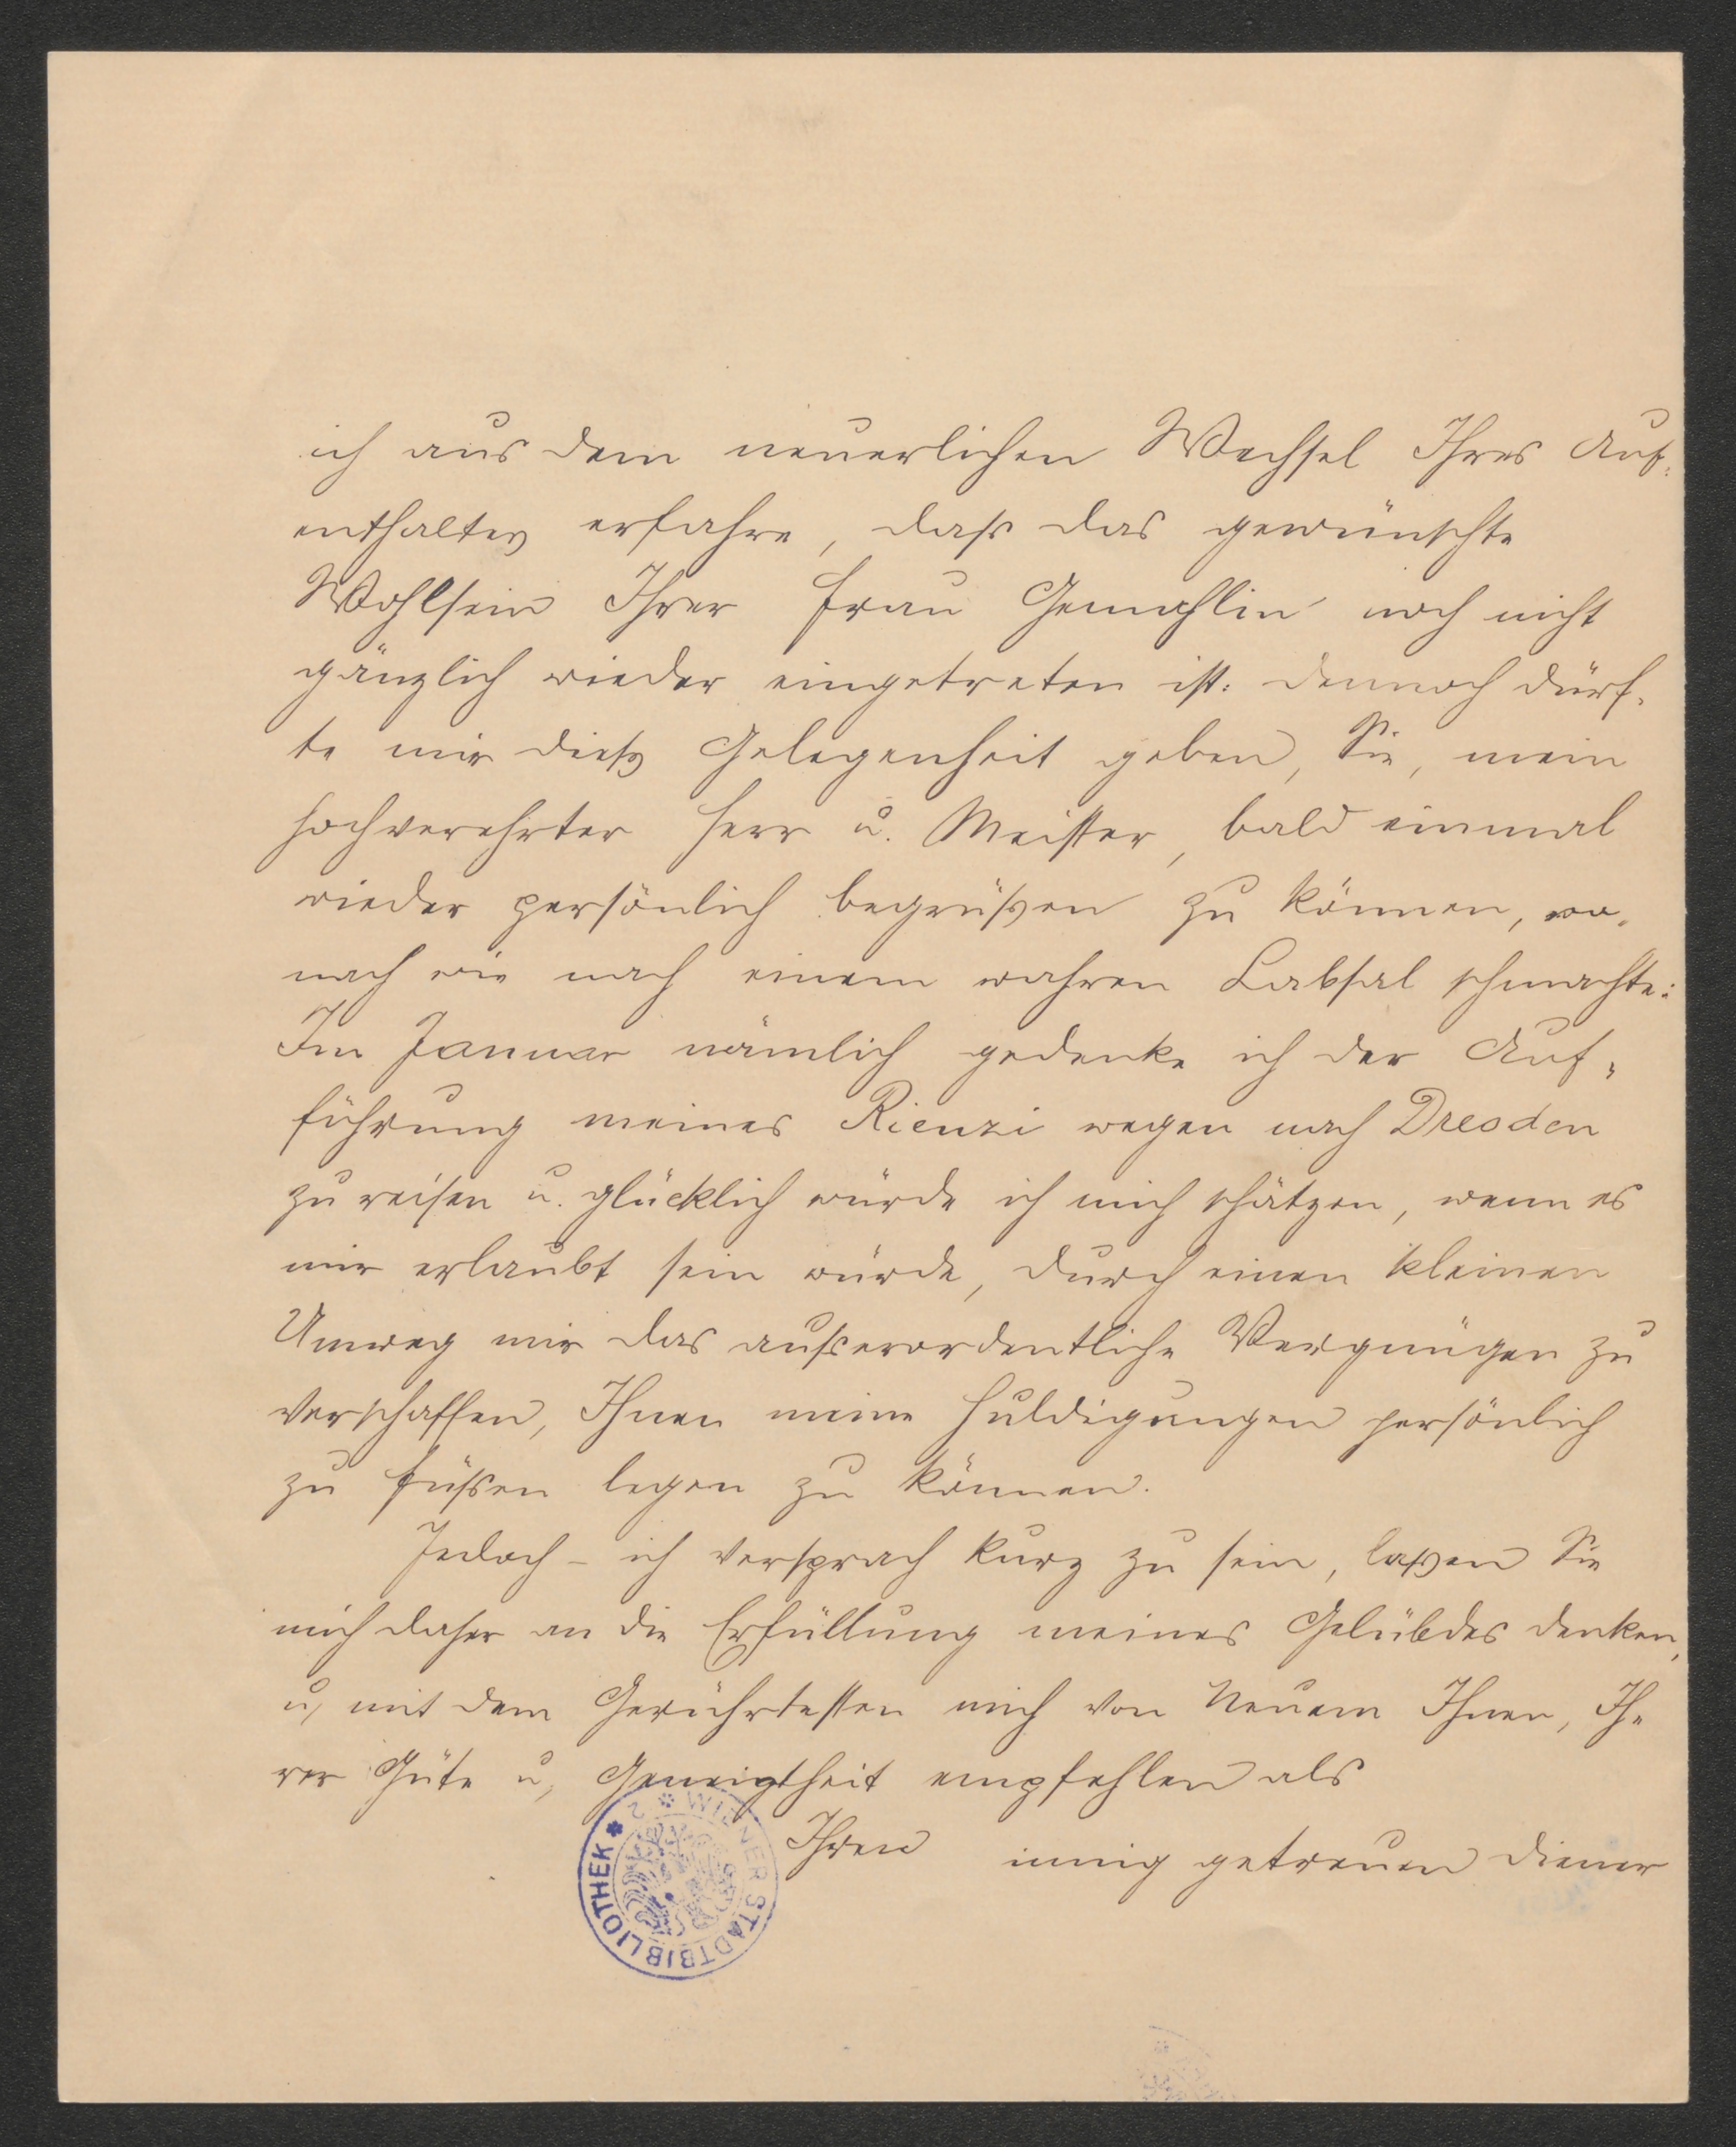 ich aus dem neuerlichen Wechsel Ihres Auf-
enthaltes erfahre, dass das gewünschte
Wohlsein Ihrer Frau Gemahlin noch nicht
gänzlich wieder eingetreten ist: dennoch dürf-
te mir dieß Gelegenheit geben, Sie, mein
hochverehrter Herr u. Meister, bald einmal
wieder persönlich begrüßen zu können, wo-
nach wie nach einem wahren Labsal schmachte:
Im Januar nämlich gedenke ich der Auf-
führung meines Rienzi wegen nach Dresden
zu reisen u. glücklich würde ich mich schätzen, wenn es
mir erlaubt sein würde, durch einen kleinen
Umweg mir das ausserordentliche Vergnügen zu
verschaffen, Ihnen meine Huldigungen persönlich
zu Füssen legen zu können.
Jedoch – ich versprach kurz zu sein, laßen Sie
mich daher an die Erfüllung meines Gelübdes denken,
u, mit dem Gerührtesten mich von Neuem Ihnen, Ih-
rer Güte u, Geneigtheit empfehlen als
Ihren innig getreuen Diener
WIENER STADTBIBLIOTHEK